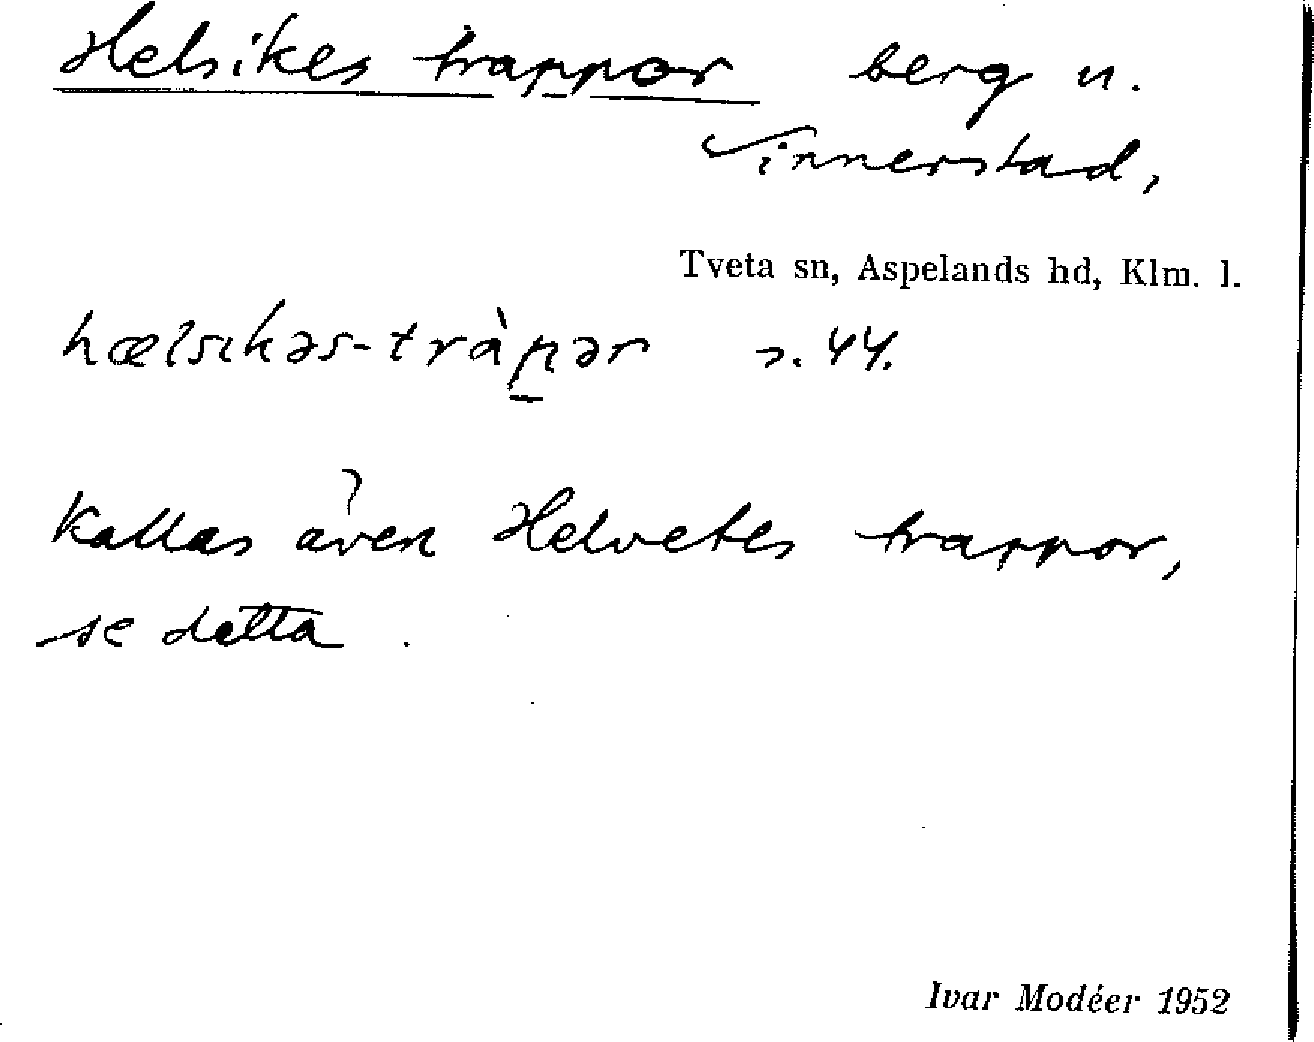 Helsikes trappor berg u.
Vinnerstad,
Tveta sn, Aspelands hd, Klm. l.
hælsıkəs-tràp̠ər s. 44.
Kallas även Helvetes trappor,
se detta.
Ivar Modéer 1952